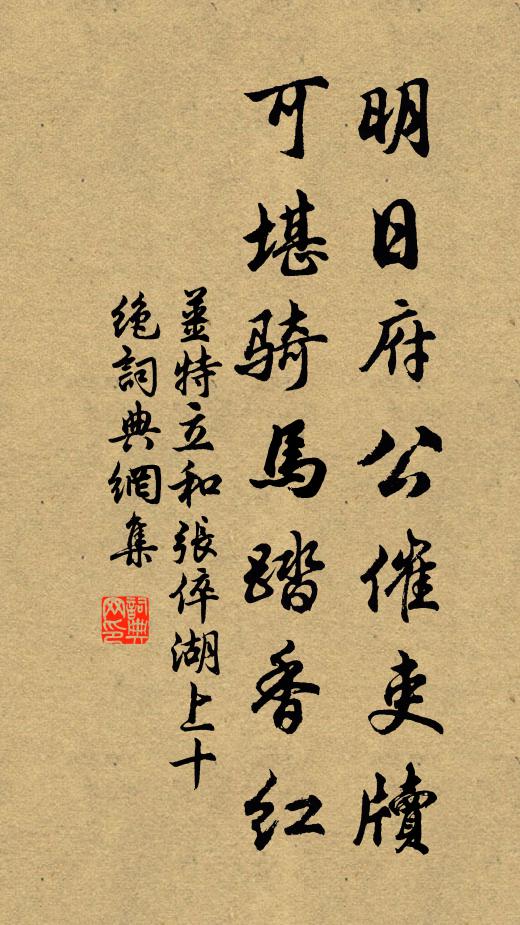 明日府公催吏牘
可堪騎馬踏香紅
薑特立和張倅湖上十
絶詞典網集
詞典
网印